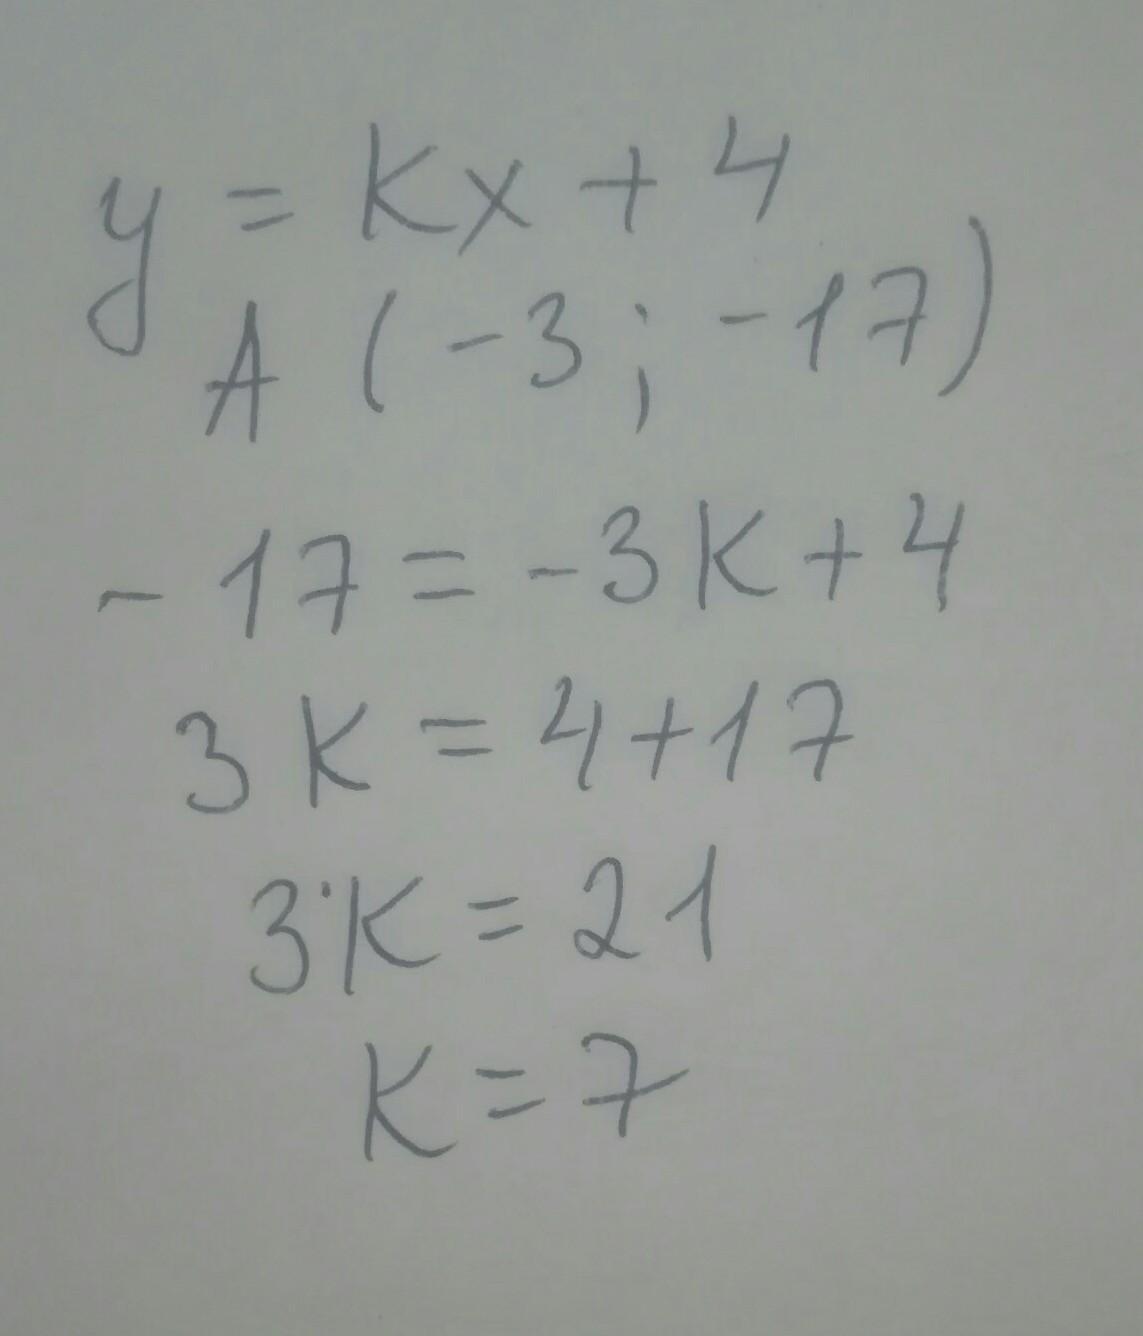 y = Kx + 4
A (-3 ; -17)
- 17 = -3K + 4
3 K = 4+17
3·K = 21
K = 7